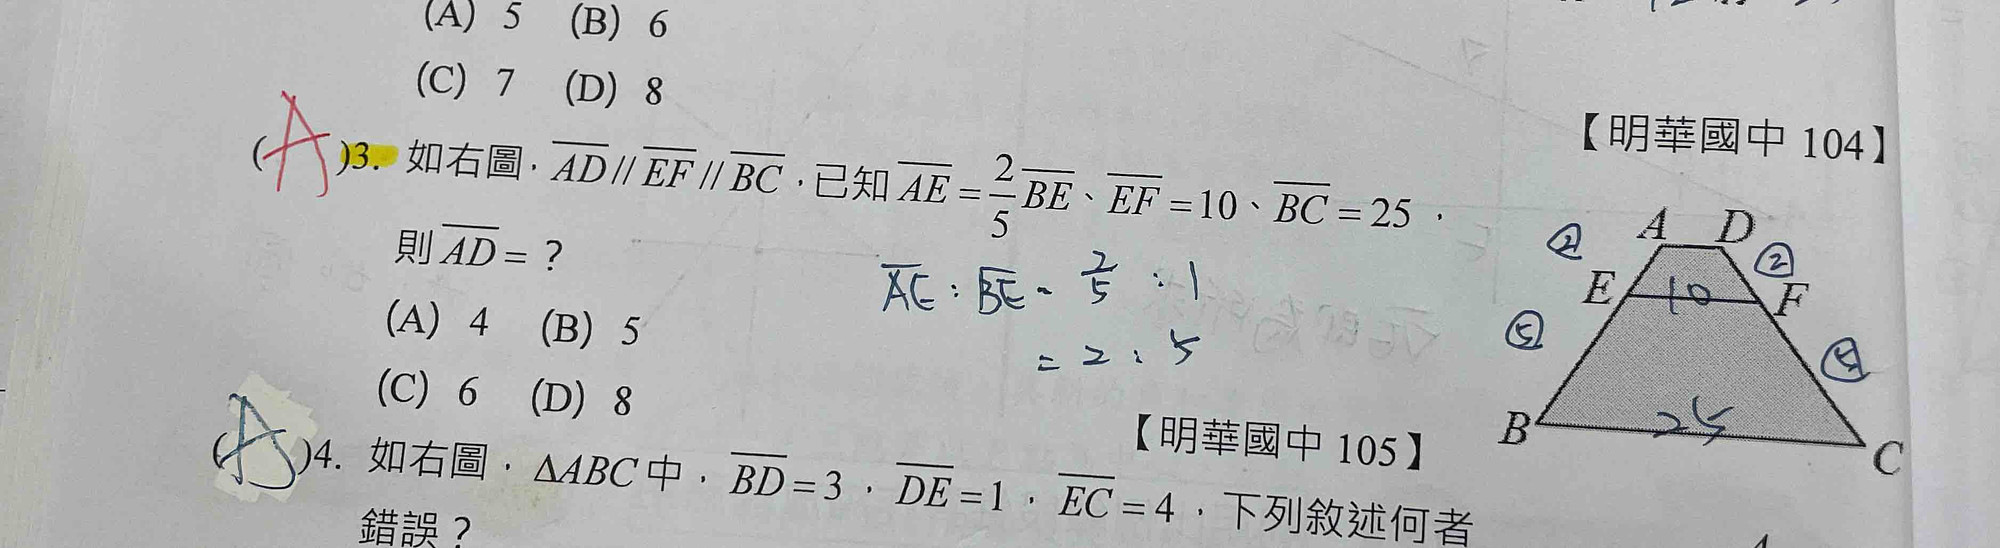 (A) 5 (B) 6
(C) 7 (D) 8
【明華國中 104】
(A)3. 如右圖，AD // EF // BC，已知 AE = 2/5 BE、EF = 10、BC = 25，
則 AD = ？
(A) 4 (B) 5
(C) 6 (D) 8
AE : BE = 2/5 : 1
= 2 : 5
A D
② ②
E 10 F
⑤ ⑤
B 25 C
【明華國中 105】
(A)4. 如右圖，ΔABC 中，BD = 3，DE = 1，EC = 4，下列敘述何者
錯誤？
A